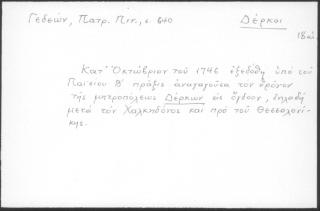 Γεδεών, Πατρ. Πιν., σ. 640
Δέρκοι
18 αἰ.
Κατ' Ὀκτώβριον τοῦ 1746 ἐξεδόθη ὑπὸ τοῦ
Παϊσίου Β' πρᾶξις ἀναγαγοῦσα τὸν θρόνον
τῆς μητροπόλεως Δέρκων εἰς ὄγδοον, δηλαδὴ
μετὰ τὸν Χαλκηδόνος καὶ πρὸ τοῦ Θεσσαλονί-
κης.